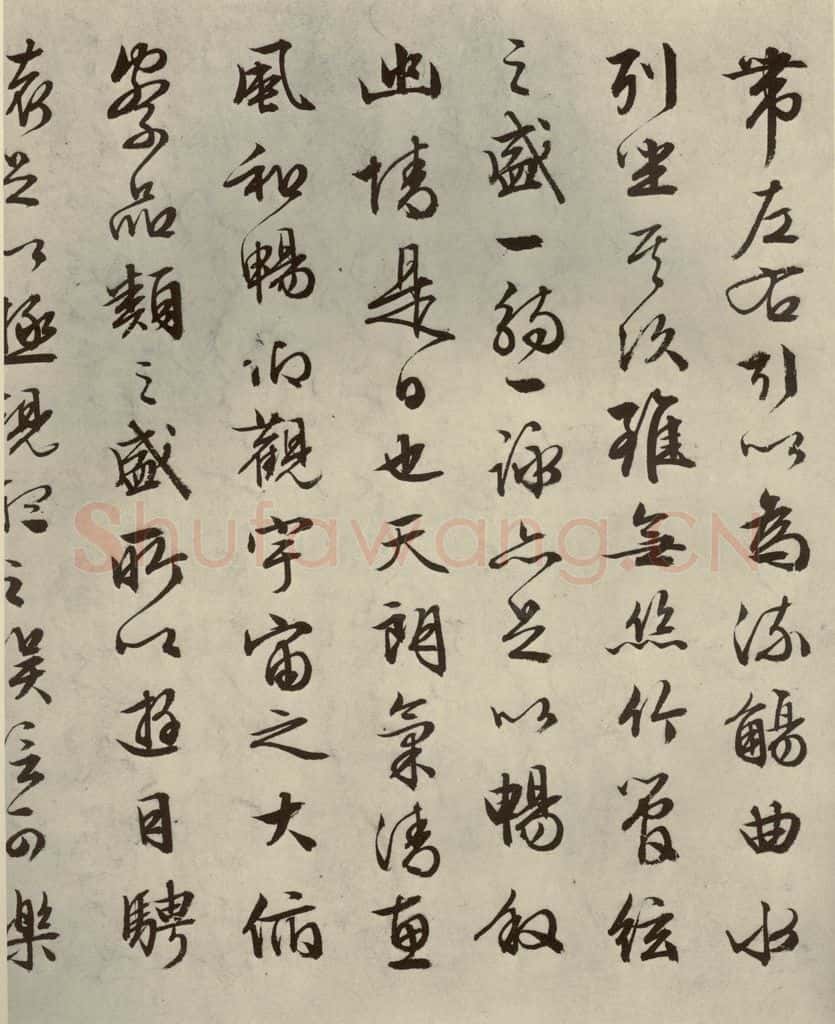 帶左右引以為流觴曲水
列坐其次雖無絲竹管絃
之盛一觴一詠亦足以暢敘
幽情是日也天朗氣清惠
風和暢仰觀宇宙之大俯
察品類之盛所以遊目騁
懷足以極視聽之娛信可樂
Shufawang.CN